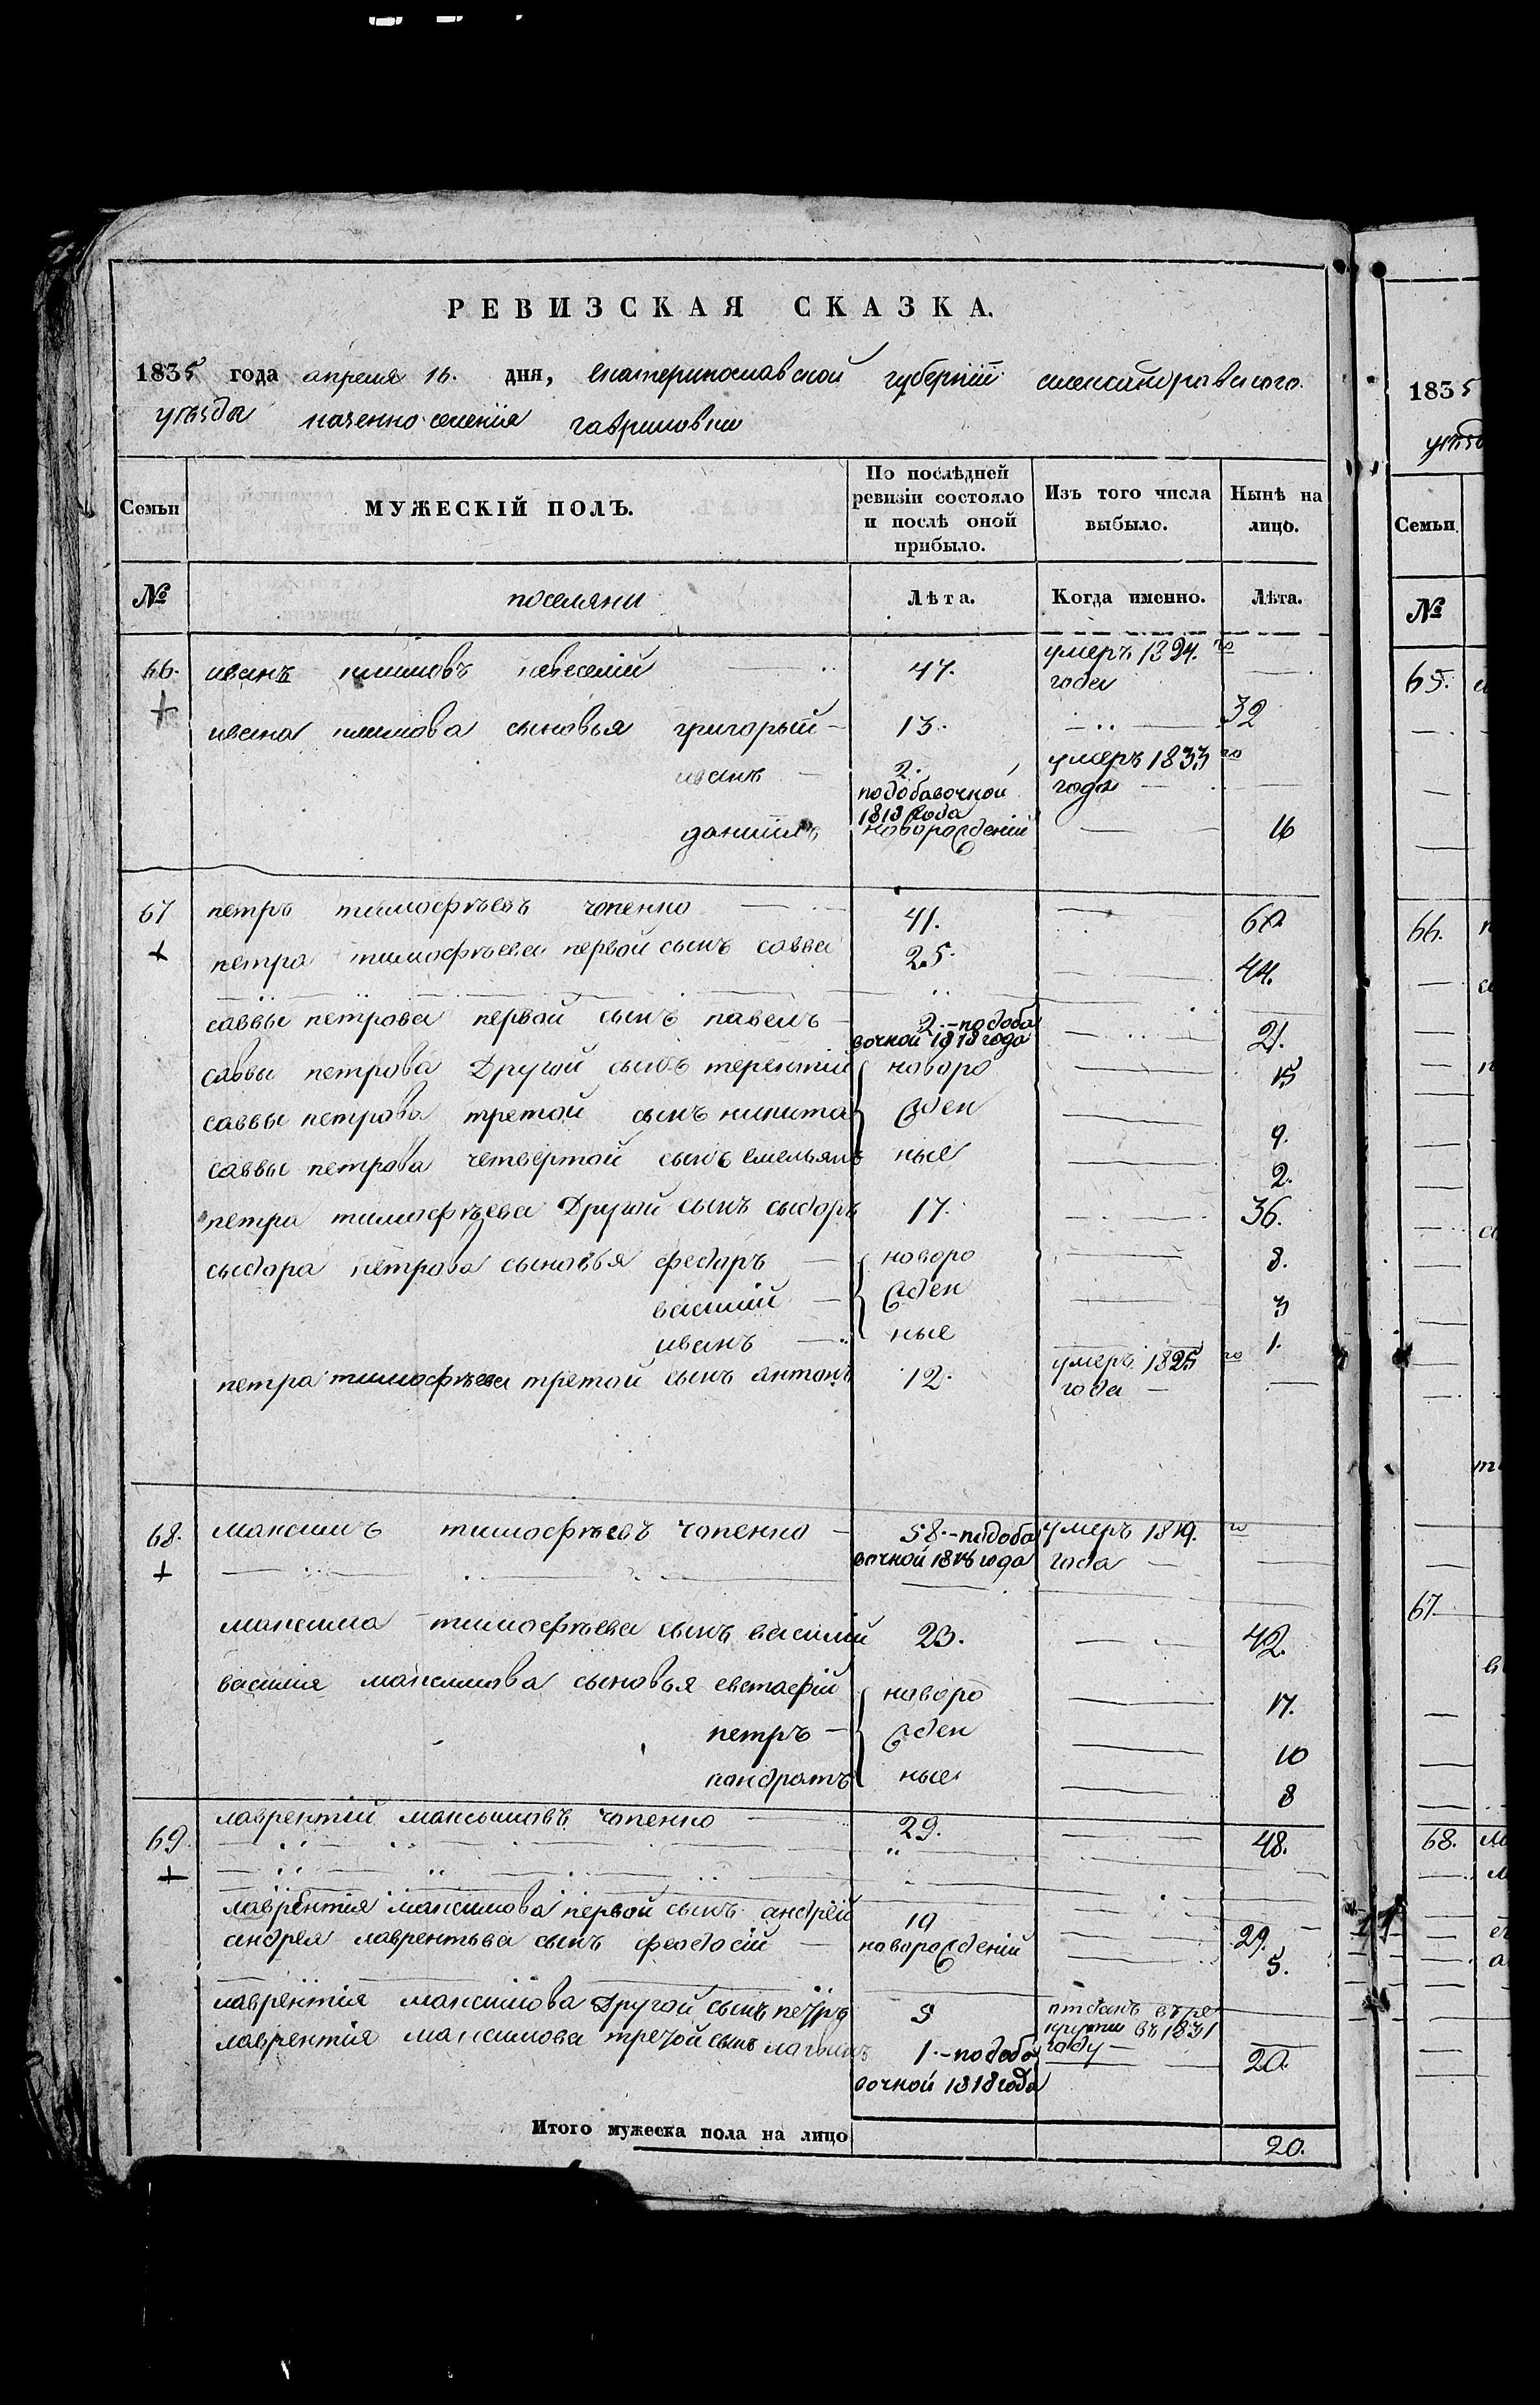 РЕВИЗСКАЯ СКАЗКА.
1835 года апреля 16. дня, екатеринославской губерніи александровского
уезда казенно селенія гавриловки
Семьи МУЖЕСКІЙ ПОЛЪ. По послѣдней ревизіи состояло и послѣ оной прибыло. Изъ того числа выбыло. Нынѣ на лицо.
№ поселяни Лѣта. Когда именно. Лѣта.
66. иванъ климовъ 47. умеръ 1824. го года
ивана климова сыновья григорый 13. 32
иванъ 2. подобавочной 1818 года умеръ 1833 го года
даниилъ новорожденій 16
67 петръ тимофѣевъ чопенко 41. 60
петра тимофѣева первой сынъ савва 25. 44.
саввы петрова первой сынъ павелъ 2.-подобавочной 1818 года 21.
саввы петрова другой сынъ терентій новоро 15
саввы петрова третой сынъ никита жден 9.
саввы петрова четвертой сынъ емельянъ ные 2.
петра тимофѣева другой сынъ сыдоръ 17. 36.
сыдора петрова сыновья федоръ новоро 8.
василій жден 3
иванъ ные 1.
петра тимофѣева третой сынъ антонъ 12. умеръ 1825 го года
68. максимъ тимофѣевъ чопенко 58.-подобавочной 1818 года умеръ 1819. го года
максима тимофѣева сынъ василій 23. 42.
василія максимова сыновья евстафій новоро 17.
петръ жден 10
кондратъ ные 8
69 лаврентій максымовъ чопенко 29. 48.
лаврентія максимова первой сынъ андрей 10 29.
андрея лаврентьва сынъ феодосій новорожденій 5.
лаврентія максимова другой сынъ петръ 5 отданъ въ рекруты въ 1831 году
лаврентія максимова третой сынъ 1.-подобавочной 1818 года 20.
Итого мужеска пола на лицо 20.
1835
уезд
Семьи
№
65.
66.
67.
68.